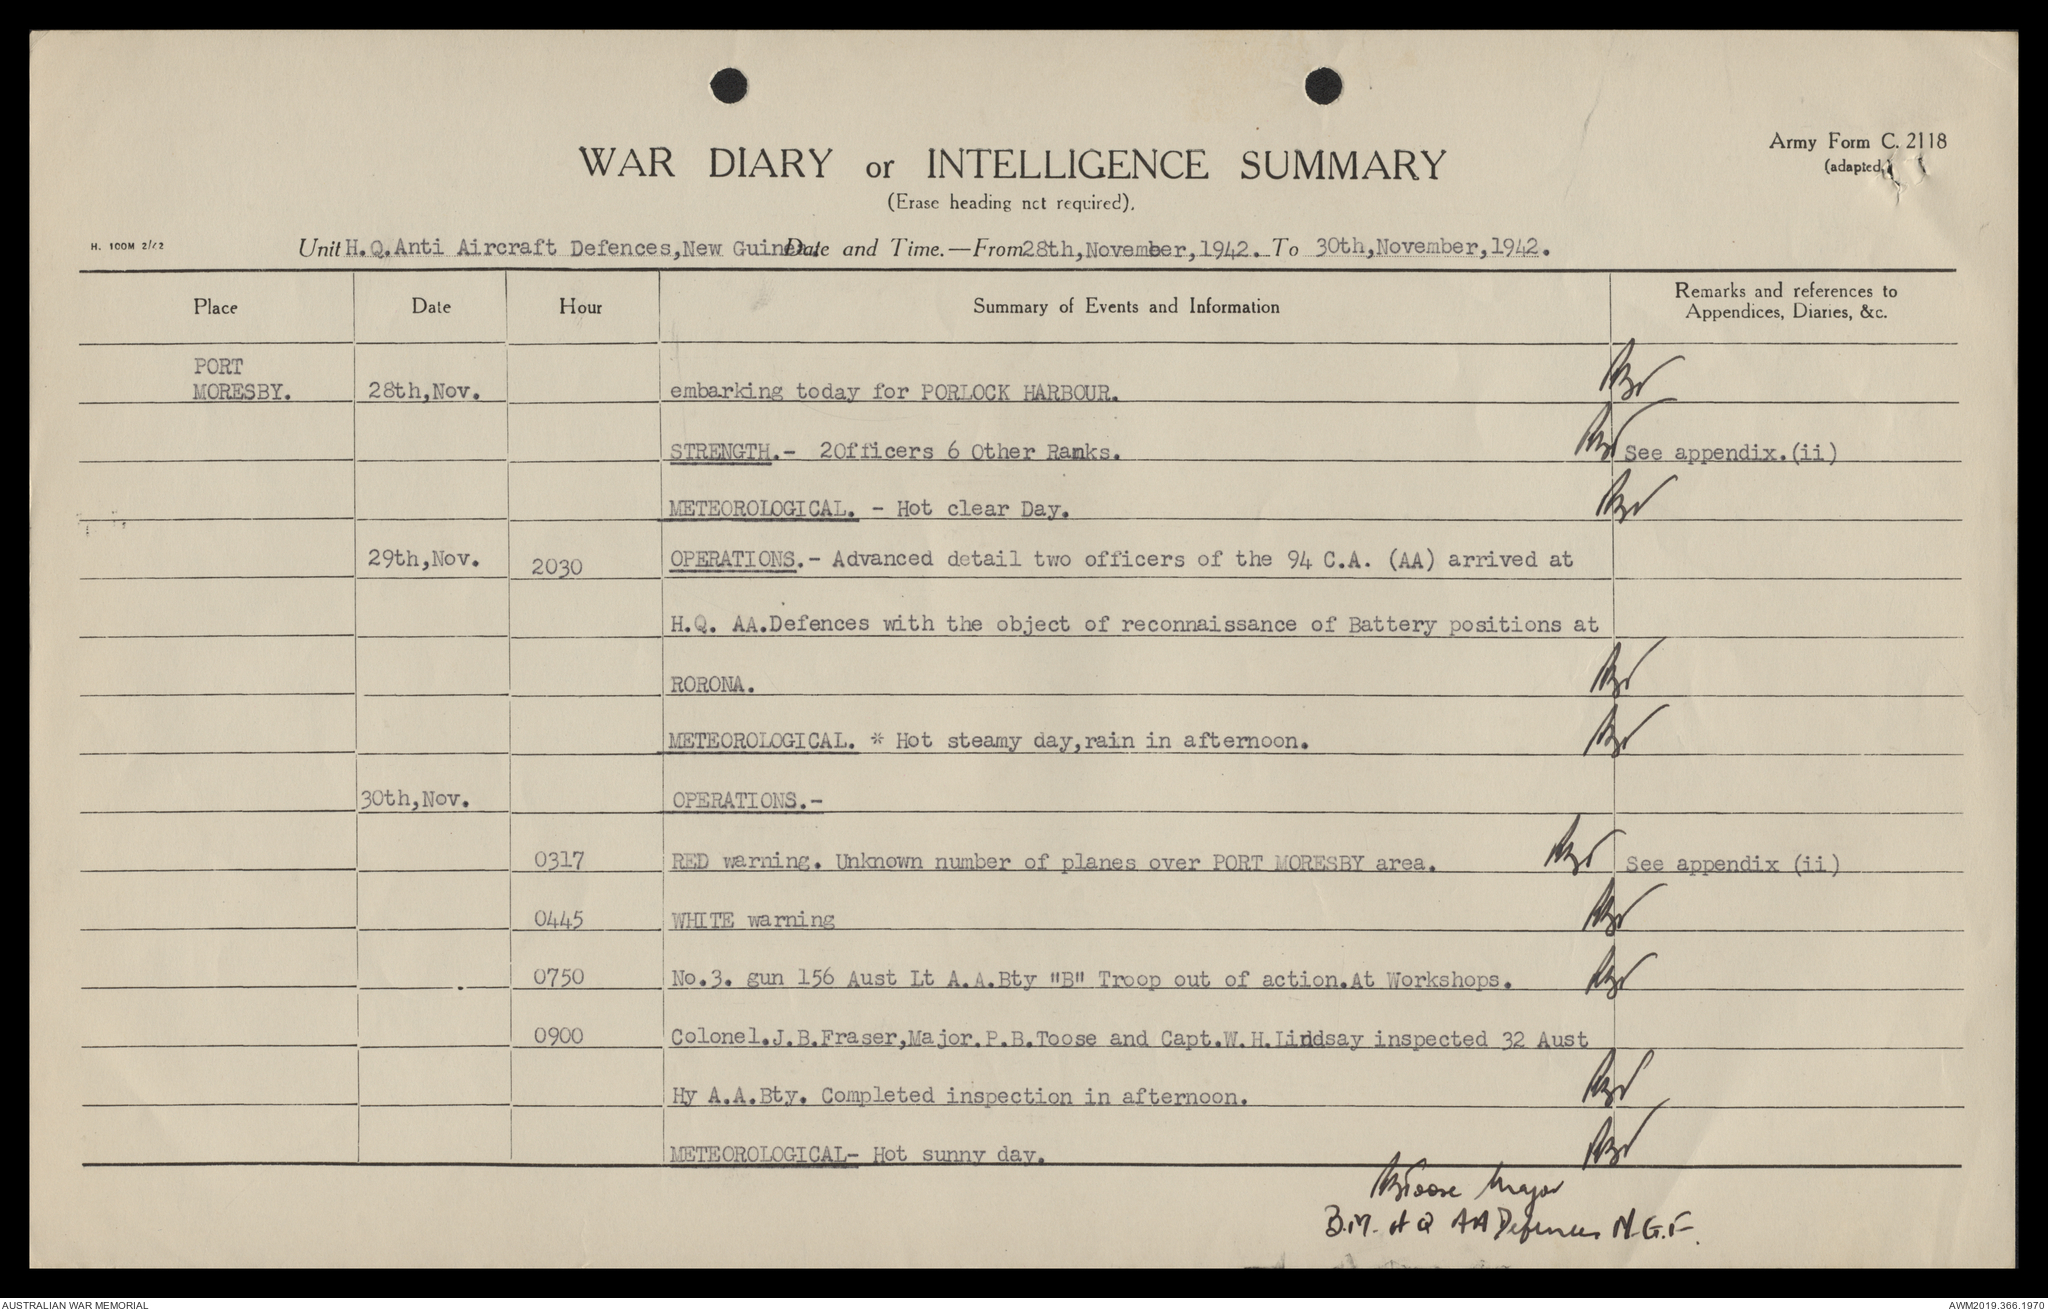 Army Form C. 2118
(adapted)
WAR DIARY or INTELLIGENCE SUMMARY
(Erase heading not required).
H. 100M 2/42
Unit H.Q.Anti Aircraft Defences,New Guinea. Date and Time.—From 28th,November,1942. To 30th,November,1942.
Place Date Hour Summary of Events and Information Remarks and references to
Appendices, Diaries, &c.
PORT
MORESBY. 28th,Nov. embarking today for PORLOCK HARBOUR.
STRENGTH.- 2Officers 6 Other Ranks. See appendix.(ii)
METEOROLOGICAL. - Hot clear Day.
29th,Nov. 2030 OPERATIONS.- Advanced detail two officers of the 94 C.A. (AA) arrived at
H.Q. AA.Defences with the object of reconnaissance of Battery positions at
RORONA.
METEOROLOGICAL. * Hot steamy day,rain in afternoon.
30th,Nov. OPERATIONS.-
0317 RED warning. Unknown number of planes over PORT MORESBY area. See appendix (ii)
0445 WHITE warning
0750 No.3. gun 156 Aust Lt A.A.Bty "B" Troop out of action.At Workshops.
0900 Colonel.J.B.Fraser,Major.P.B.Toose and Capt.W.H.Lindsay inspected 32 Aust
Hy A.A.Bty. Completed inspection in afternoon.
METEOROLOGICAL- Hot sunny day.
PBToose Major
B.M. H Q AA Defences N.G.F.
AUSTRALIAN WAR MEMORIAL AWM2019.366.1970